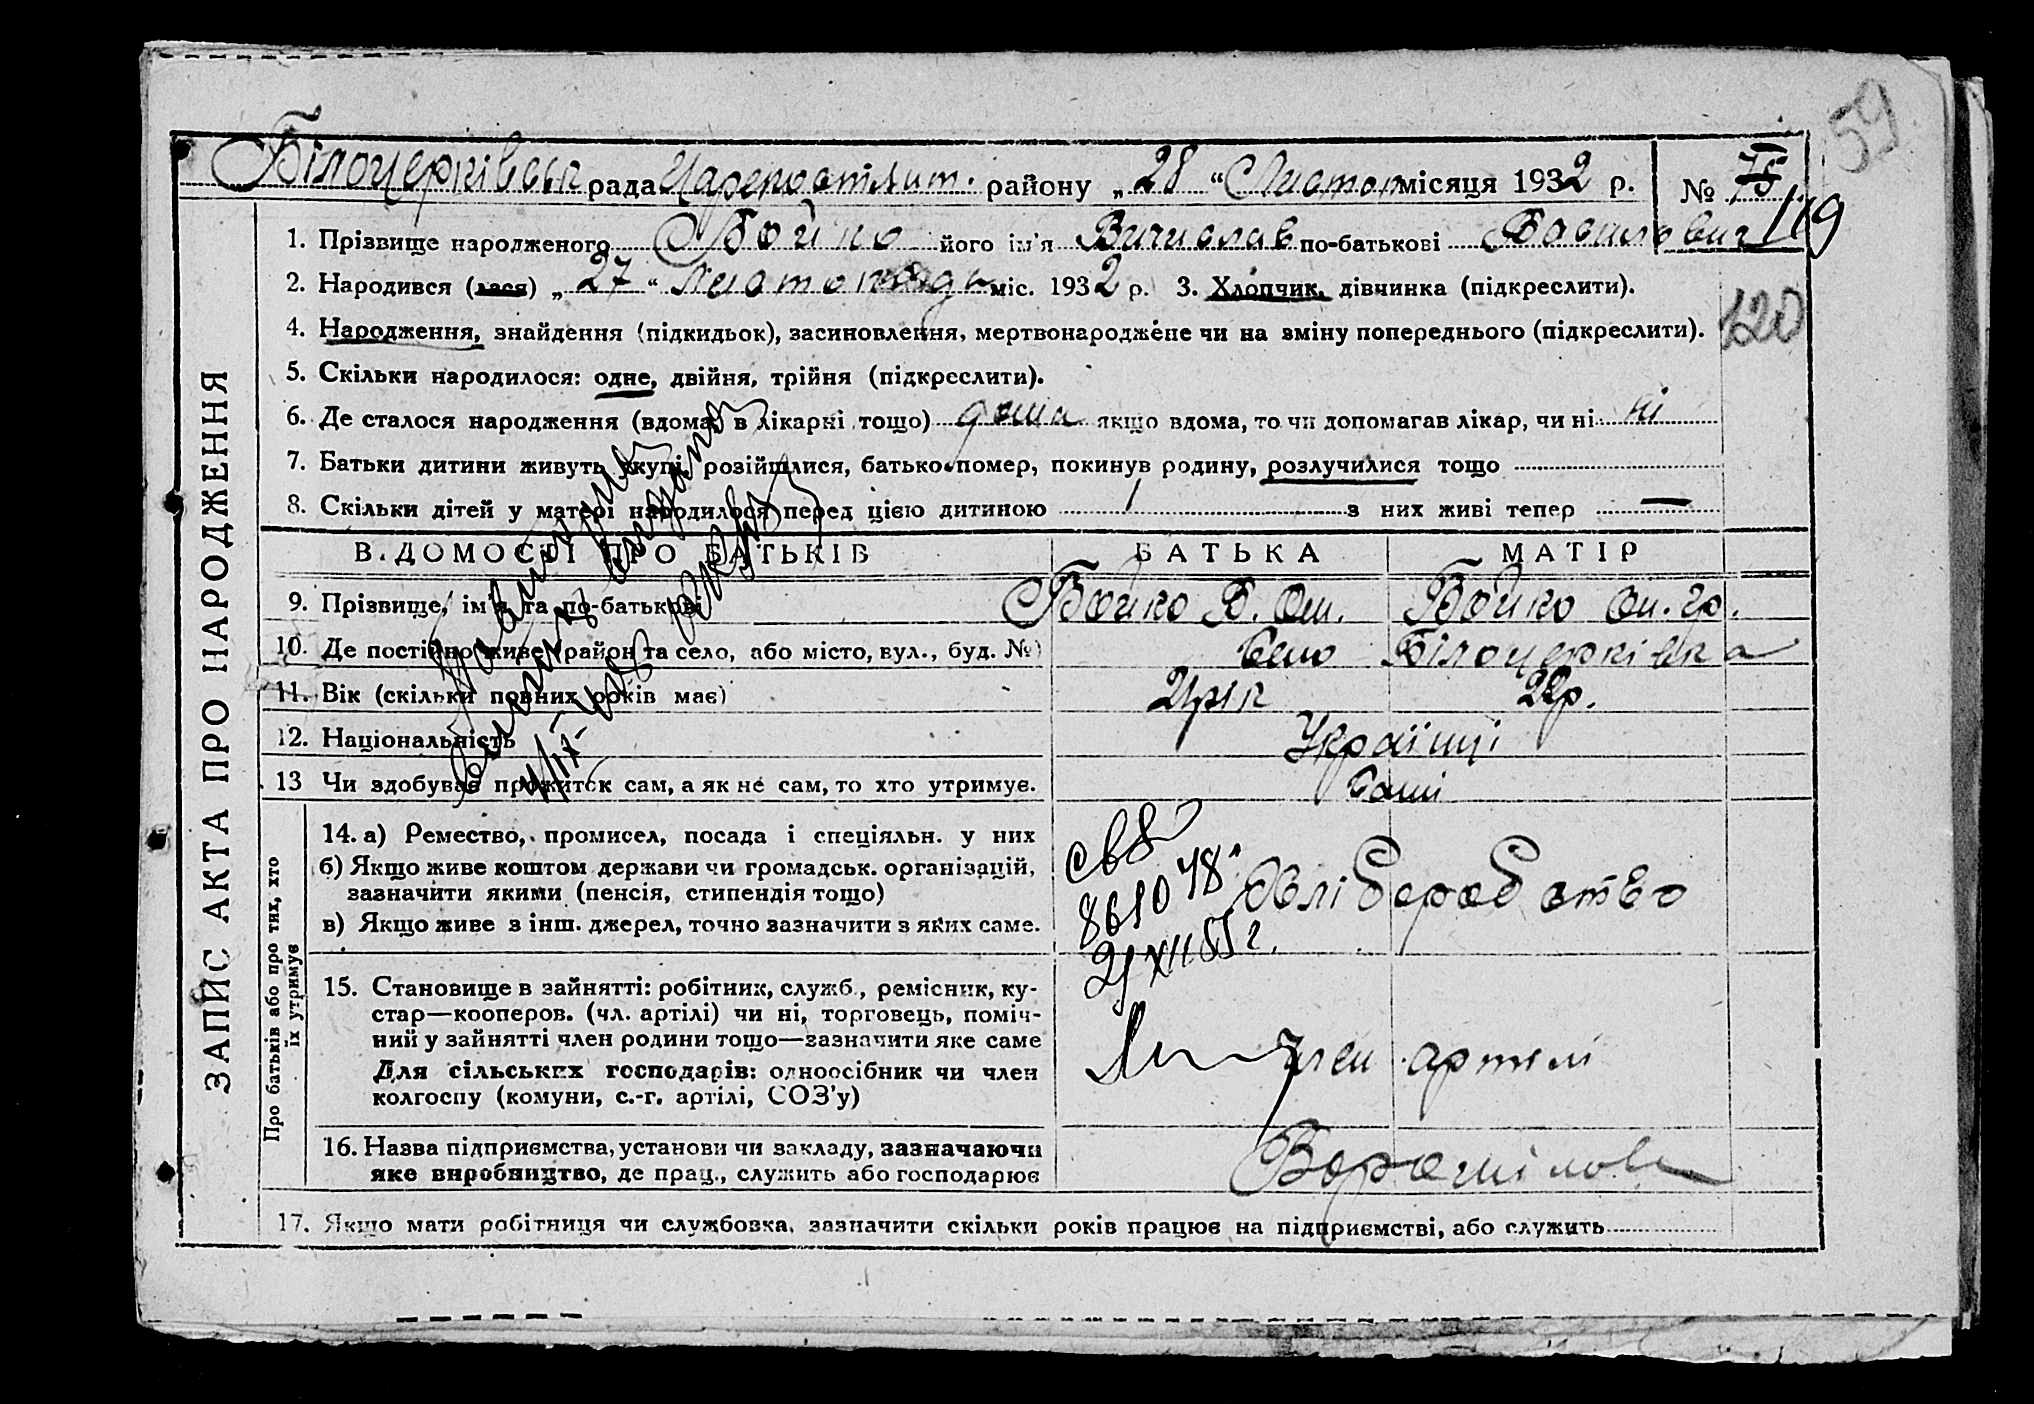 59
Білоцерківськ рада району „28“ Листоп місяця 1932 р. № 75
119
1. Прізвище народженого Бойко його ім'я Вичислав по-батькові Васильович
2. Народився (лася) „27“ Листопада міс. 1932 р. 3. Хлопчик, дівчинка (підкреслити).
120
4. Народження, знайдення (підкидьок), засиновлення, мертвонароджене чи на зміну попереднього (підкреслити).
5. Скільки народилося: одне, двійня, трійня (підкреслити).
6. Де сталося народження (вдома, в лікарні тощо) дома якщо вдома, то чи допомагав лікар, чи ні ні
7. Батьки дитини живуть вкупі, розійшлися, батько помер, покинув родину, розлучилися тощо
8. Скільки дітей у матері народилося перед цією дитиною 1 з них живі тепер —
ЗАПИС АКТА ПРО НАРОДЖЕННЯ
ВІДОМОСТІ ПРО БАТЬКІВ БАТЬКА МАТІР
9. Прізвище, ім'я та по-батькові Бойко В. Ом. Бойко Ол. Гр.
10. Де постійно живе (район та село, або місто, вул., буд. №) Село Білоцерківка
11. Вік (скільки повних років має) 21рік 22р.
12. Національність Українці
13 Чи здобуває прожиток сам, а як не сам, то хто утримує. Самі
Про батьків або про тих, хто їх утримує
14. а) Ремество, промисел, посада і спеціяльн. у них
б) Якщо живе коштом держави чи громадськ. організацій,
зазначити якими (пенсія, стипендія тощо)
в) Якщо живе з інш. джерел, точно зазначити з яких саме.
Хліборобство
15. Становище в зайнятті: робітник, служб., ремісник, ку-
стар—кооперов. (чл. артілі) чи ні, торговець, поміч-
ний у зайнятті член родини тощо—зазначити яке саме
Для сільських господарів: одноосібник чи член
колгоспу (комуни, с.-г. артілі, СОЗ'у)
Член артілі
16. Назва підприємства, установи чи закладу, зазначаючи
яке виробництво, де прац., служить або господарює
Ворошилова
17. Якщо мати робітниця чи службовка, зазначити скільки років працює на підприємстві, або служить